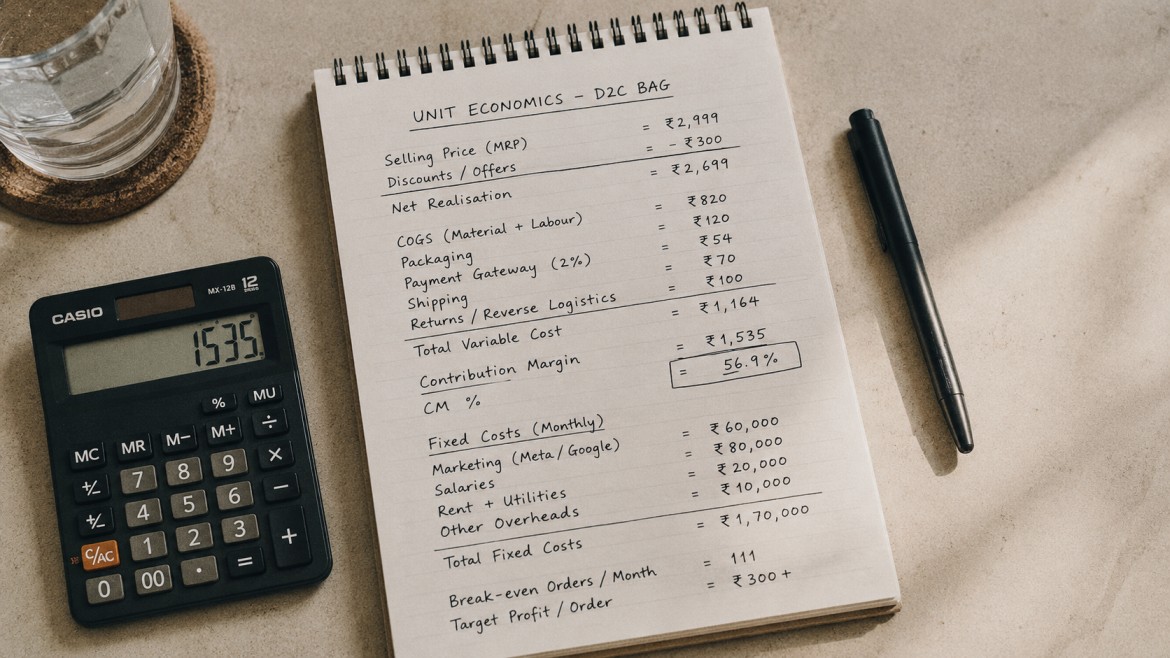 UNIT ECONOMICS – D2C BAG
Selling Price (MRP) = ₹2,999
Discounts / Offers = - ₹300
Net Realisation = ₹2,699
COGS (Material + Labour) = ₹820
Packaging = ₹120
Payment Gateway (2%) = ₹54
Shipping = ₹70
Returns / Reverse Logistics = ₹100
Total Variable Cost = ₹1,164
Contribution Margin = ₹1,535
CM % = 56.9%
Fixed Costs (Monthly)
Marketing (Meta / Google) = ₹60,000
Salaries = ₹80,000
Rent + Utilities = ₹20,000
Other Overheads = ₹10,000
Total Fixed Costs = ₹1,70,000
Break-even Orders / Month = 111
Target Profit / Order = ₹300 +
CASIO MX-12B 12
1535.
% MU
MC MR M− M+ ÷
+/− 7 8 9 ×
+/− 4 5 6 −
C/AC 1 2 3 +
0 00 · =